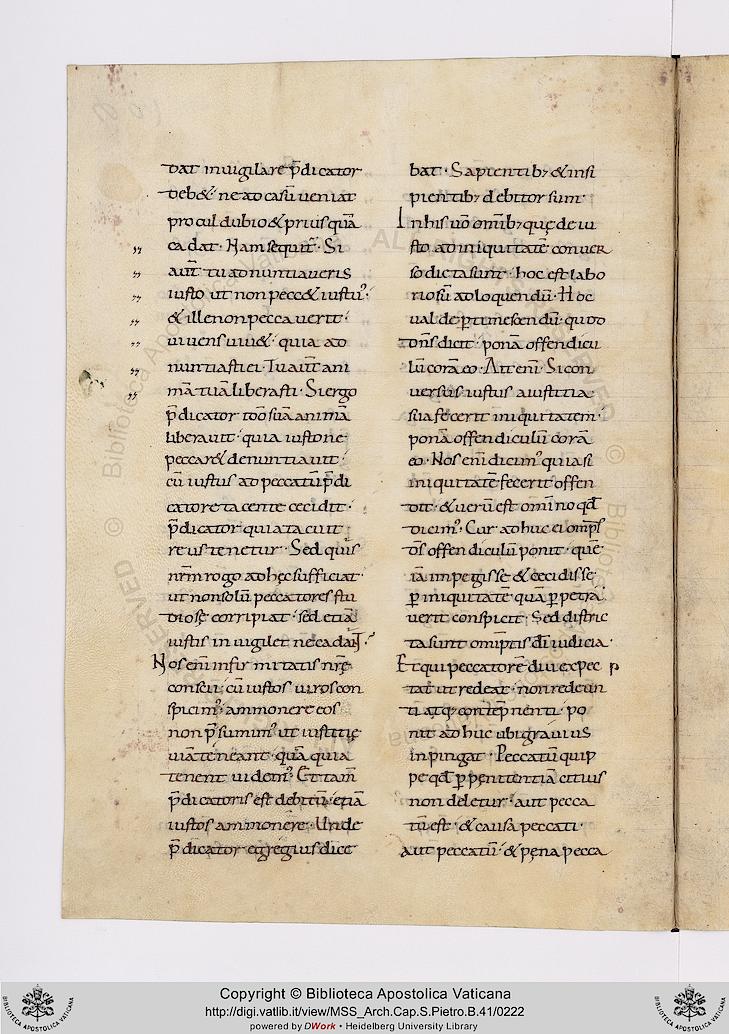 dat inuigilare p̄dicator
deb&· ne ad casū ueniat
procul dubio & prius quā
cadat· Nam sequit̄· Si
aut̄ tu adnuntiaueris
iusto ut non pecc& iustus·
& ille non peccauerit·
uiuens uiu&· quia ad
nuntiasti ei· Tu aut̄ ani
mā tuā liberasti· Si ergo
p̄dicator tc̄ suā animā
liberauit· quia iusto ne
peccar& denuntiauit·
cū iustus ad peccatū p̄di
catore tacente cecidit·
p̄dicator quia tacuit
reus tenetur· Sed quis
nr̄m rogo ad hęc sufficiat·
ut non solū peccatores stu
diose corripiat· sed etiā
iustis inuigilet ne cadant·
Nos enī infirmitatis nr̄ę
conscii· cū iustos uiros con
spicim᾽ ammonere eos
non p̄sumim᾽ ut iustitię
uiā teneant· quā quia
tenent uidem᾽· Et tam̄
p̄dicatoris est debitū· etiā
iustos ammonere· Unde
p̄dicator egregius dice
bat· Sapientib; & insi
pientib; debitor sum·
In his uō om̄ib; quę de iu
sto ad iniquitatē conuer
so dicta sunt· hoc est labo
riosū ad loquendū· Hoc
ualde ptimescendū· quod
dn̄s dicit· ponā offendicu
lū corā eo· Ait enī· Si con
uersus iustus a iustitia
sua fecerit iniquitatem·
ponā offendiculū corā
eo· Nos enī dicim᾽ quia si
iniquitatē fecerit offen
dit· & uerū est omīno qd̄
dicim᾽· Cur adhuc ei omp̄s
ds̄ offendiculū ponit· quē
iā impegisse & cecidisse
p iniquitatē quā ppetra
uerit conspicit· Sed distric
ta sunt omīptis dī iudicia·
Et qui peccatorē diu expec
tat ut redeat· non redeun
ti atq; contēpnenti· po
nit adhuc ubi grauius
inpingat· Peccatū quip
pe qd̄ p penitentia citius
non deletur· aut pecca
tū est· & causa peccati·
aut peccatū· & pena pecca
Copyright © Biblioteca Apostolica Vaticana
http://digi.vatlib.it/view/MSS_Arch.Cap.S.Pietro.B.41/0222
powered by DWork • Heidelberg University Library